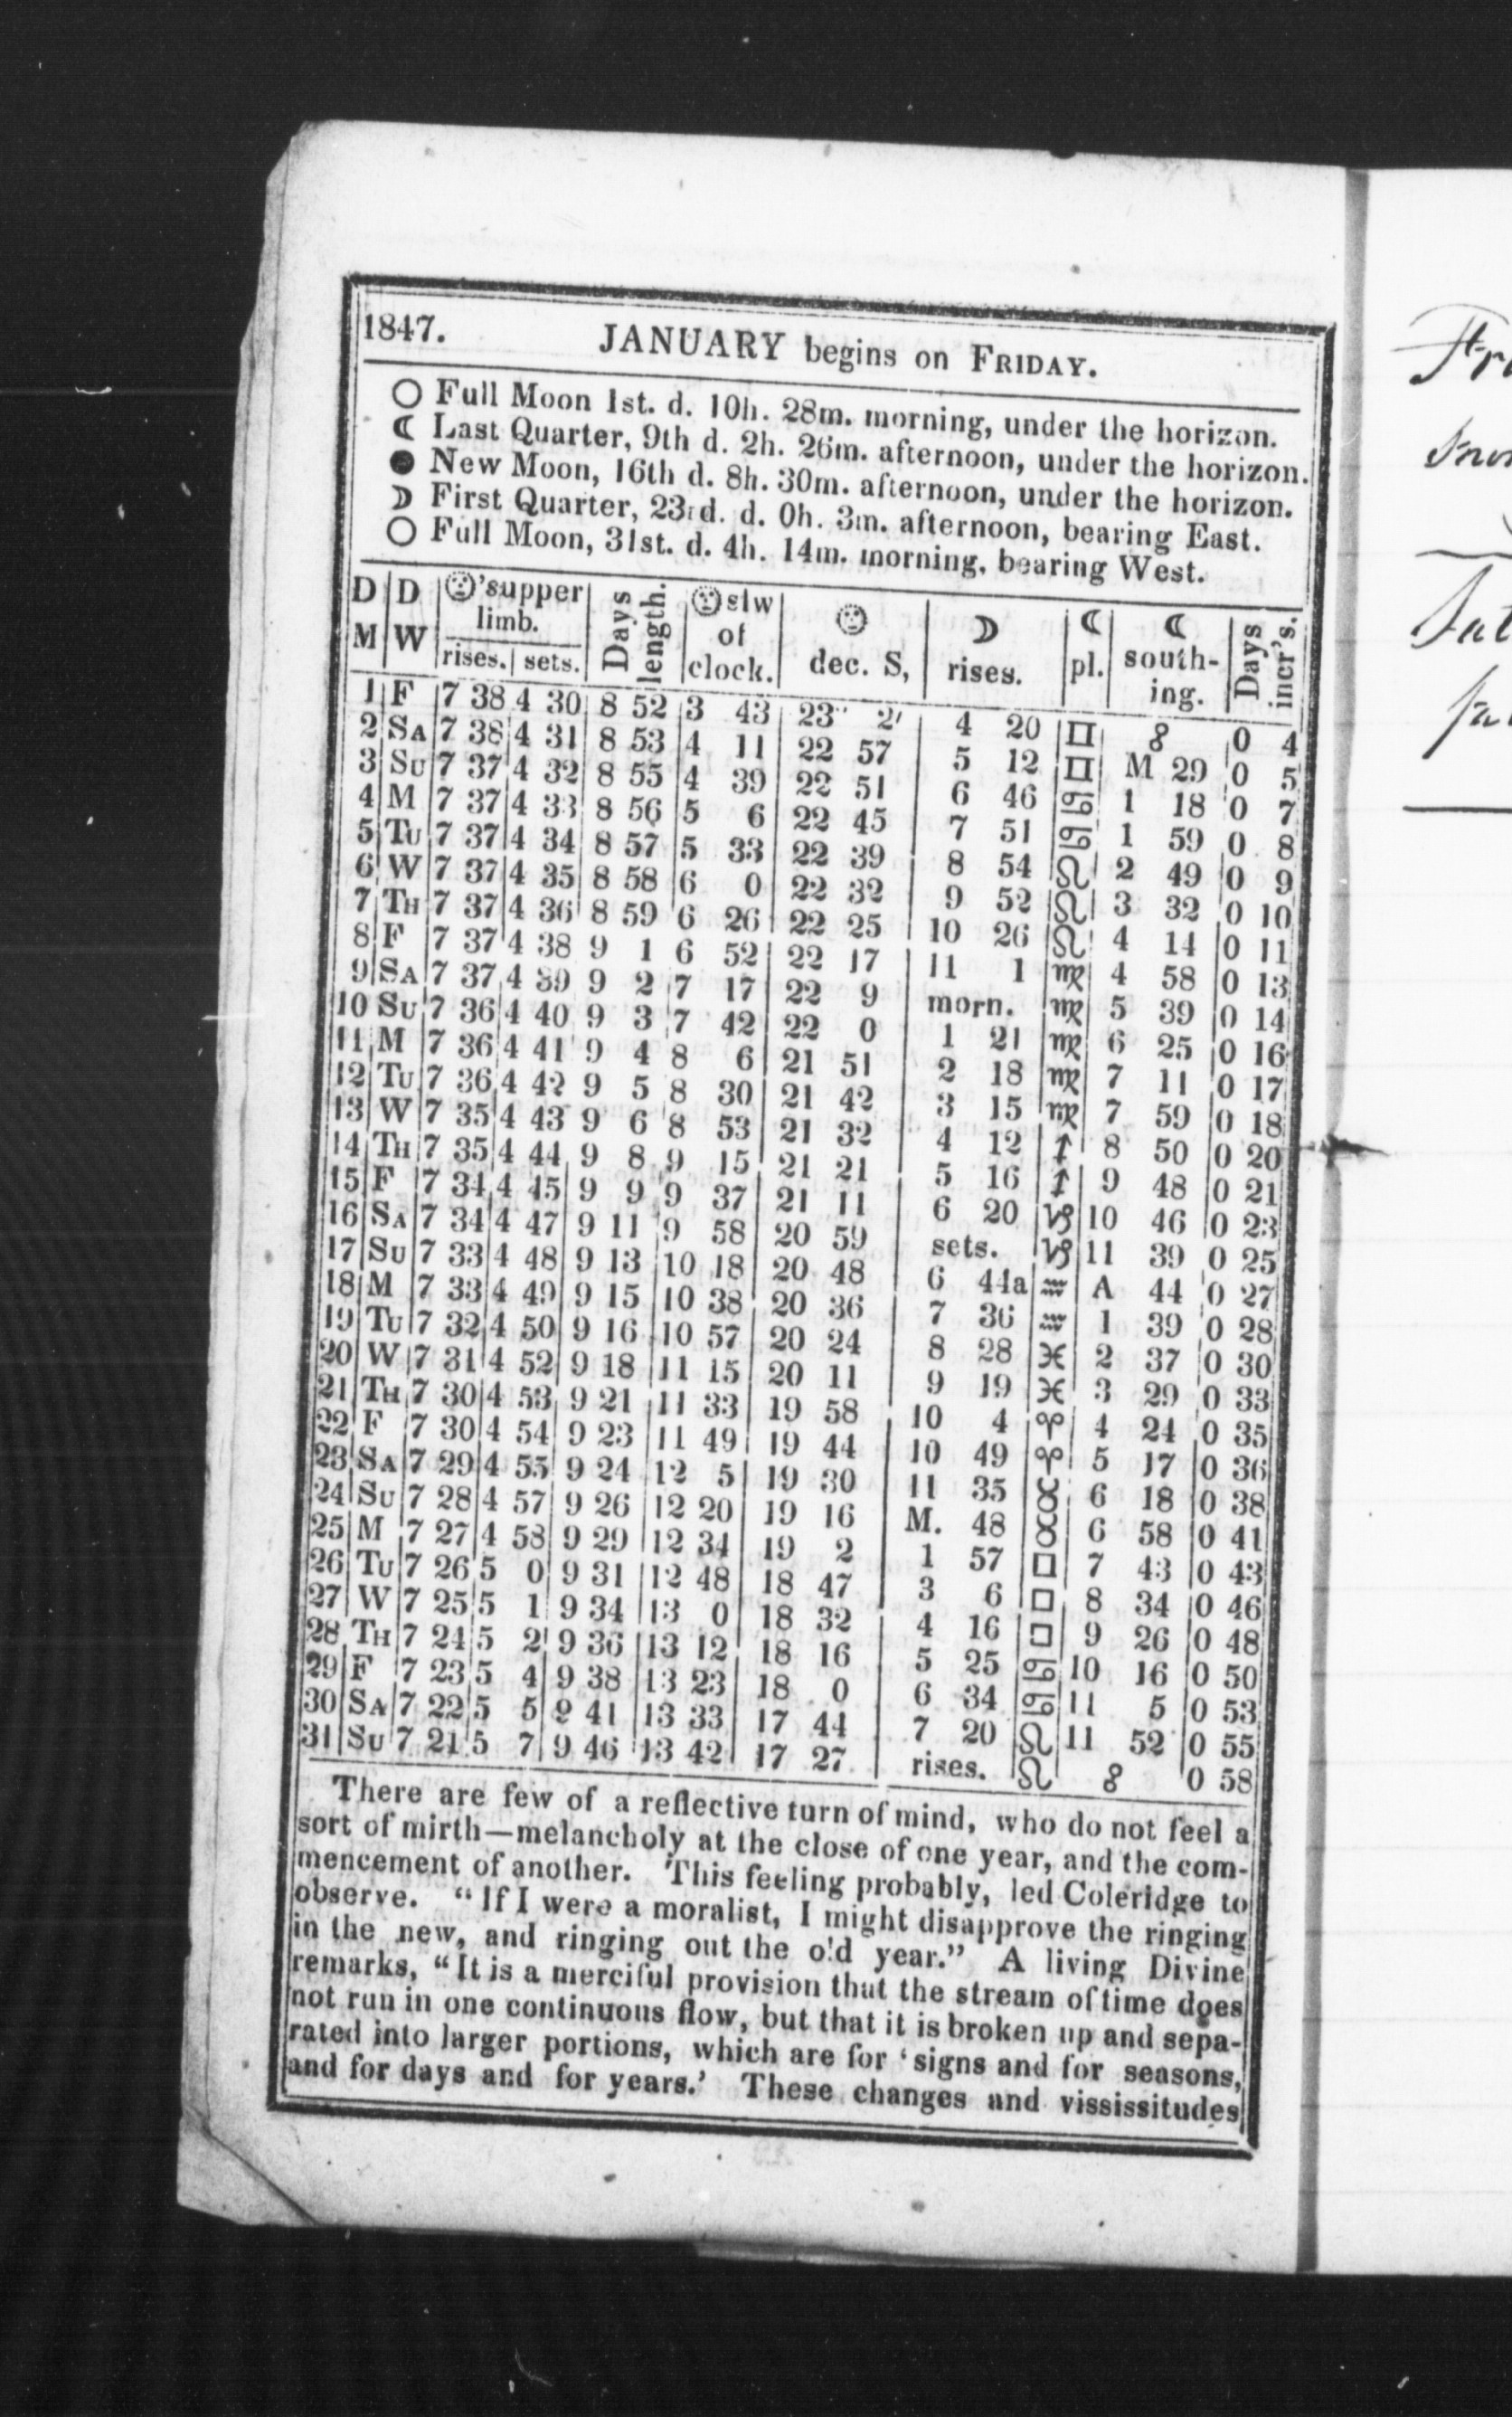 1847. JANUARY begins on FRIDAY.
○ Full Moon 1st. d. 10h. 28m. morning, under the horizon.
☾ Last Quarter, 9th d. 2h. 26m. afternoon, under the horizon.
● New Moon, 16th d. 8h. 30m. afternoon, under the horizon.
☽ First Quarter, 23rd. d. 0h. 3m. afternoon, bearing East.
○ Full Moon, 31st. d. 4h. 14m. morning, bearing West.
D M | D W | ☉'s upper limb. rises. | sets. | Days length. | ☉ slw of clock. | ☉ dec. S, | ☽ rises. | ☾ pl. | ☾ south-ing. | Days incr's.
1 F 7 38 4 30 8 52 3 43 23 2 4 20 ♊ 8 0 4
2 SA 7 38 4 31 8 53 4 11 22 57 5 12 ♊ M 29 0 5
3 SU 7 37 4 32 8 55 4 39 22 51 6 46 ♋ 1 18 0 7
4 M 7 37 4 33 8 56 5 6 22 45 7 51 ♋ 1 59 0 8
5 TU 7 37 4 34 8 57 5 33 22 39 8 54 ♌ 2 49 0 9
6 W 7 37 4 35 8 58 6 0 22 32 9 52 ♌ 3 32 0 10
7 TH 7 37 4 36 8 59 6 26 22 25 10 26 ♌ 4 14 0 11
8 F 7 37 4 38 9 1 6 52 22 17 11 1 ♍ 4 58 0 13
9 SA 7 37 4 39 9 2 7 17 22 9 morn. ♍ 5 39 0 14
10 SU 7 36 4 40 9 3 7 42 22 0 1 21 ♍ 6 25 0 16
11 M 7 36 4 41 9 4 8 6 21 51 2 18 ♍ 7 11 0 17
12 TU 7 36 4 42 9 5 8 30 21 42 3 15 ♍ 7 59 0 18
13 W 7 35 4 43 9 6 8 53 21 32 4 12 ♐ 8 50 0 20
14 TH 7 35 4 44 9 8 9 15 21 21 5 16 ♐ 9 48 0 21
15 F 7 34 4 45 9 9 9 37 21 11 6 20 ♑ 10 46 0 23
16 SA 7 34 4 47 9 11 9 58 20 59 sets. ♑ 11 39 0 25
17 SU 7 33 4 48 9 13 10 18 20 48 6 44a ♒ A 44 0 27
18 M 7 33 4 49 9 15 10 38 20 36 7 36 ♒ 1 39 0 28
19 TU 7 32 4 50 9 16 10 57 20 24 8 28 ♓ 2 37 0 30
20 W 7 31 4 52 9 18 11 15 20 11 9 19 ♓ 3 29 0 33
21 TH 7 30 4 53 9 21 11 33 19 58 10 4 ♈ 4 24 0 35
22 F 7 30 4 54 9 23 11 49 19 44 10 49 ♈ 5 17 0 36
23 SA 7 29 4 55 9 24 12 5 19 30 11 35 ♉ 6 18 0 38
24 SU 7 28 4 57 9 26 12 20 19 16 M. 48 ♉ 6 58 0 41
25 M 7 27 4 58 9 29 12 34 19 2 1 57 □ 7 43 0 43
26 TU 7 26 5 0 9 31 12 48 18 47 3 6 □ 8 34 0 46
27 W 7 25 5 1 9 34 13 0 18 32 4 16 □ 9 26 0 48
28 TH 7 24 5 2 9 36 13 12 18 16 5 25 ♋ 10 16 0 50
29 F 7 23 5 4 9 38 13 23 18 0 6 34 ♋ 11 5 0 53
30 SA 7 22 5 5 9 41 13 33 17 44 7 20 ♌ 11 52 0 55
31 SU 7 21 5 7 9 46 13 42 17 27 rises. ♌ 8 0 58
There are few of a reflective turn of mind, who do not feel a
sort of mirth—melancholy at the close of one year, and the com-
mencement of another. This feeling probably, led Coleridge to
observe. “If I were a moralist, I might disapprove the ringing
in the new, and ringing out the old year.” A living Divine
remarks, “It is a merciful provision that the stream of time does
not run in one continuous flow, but that it is broken up and sepa-
rated into larger portions, which are for ‘signs and for seasons,
and for days and for years.’ These changes and vississitudes